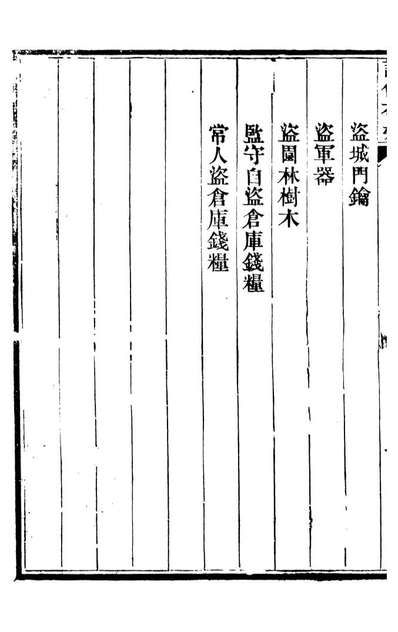 盜城門鑰
盜軍器
盜園林樹木
監守自盜倉庫錢糧
常人盜倉庫錢糧